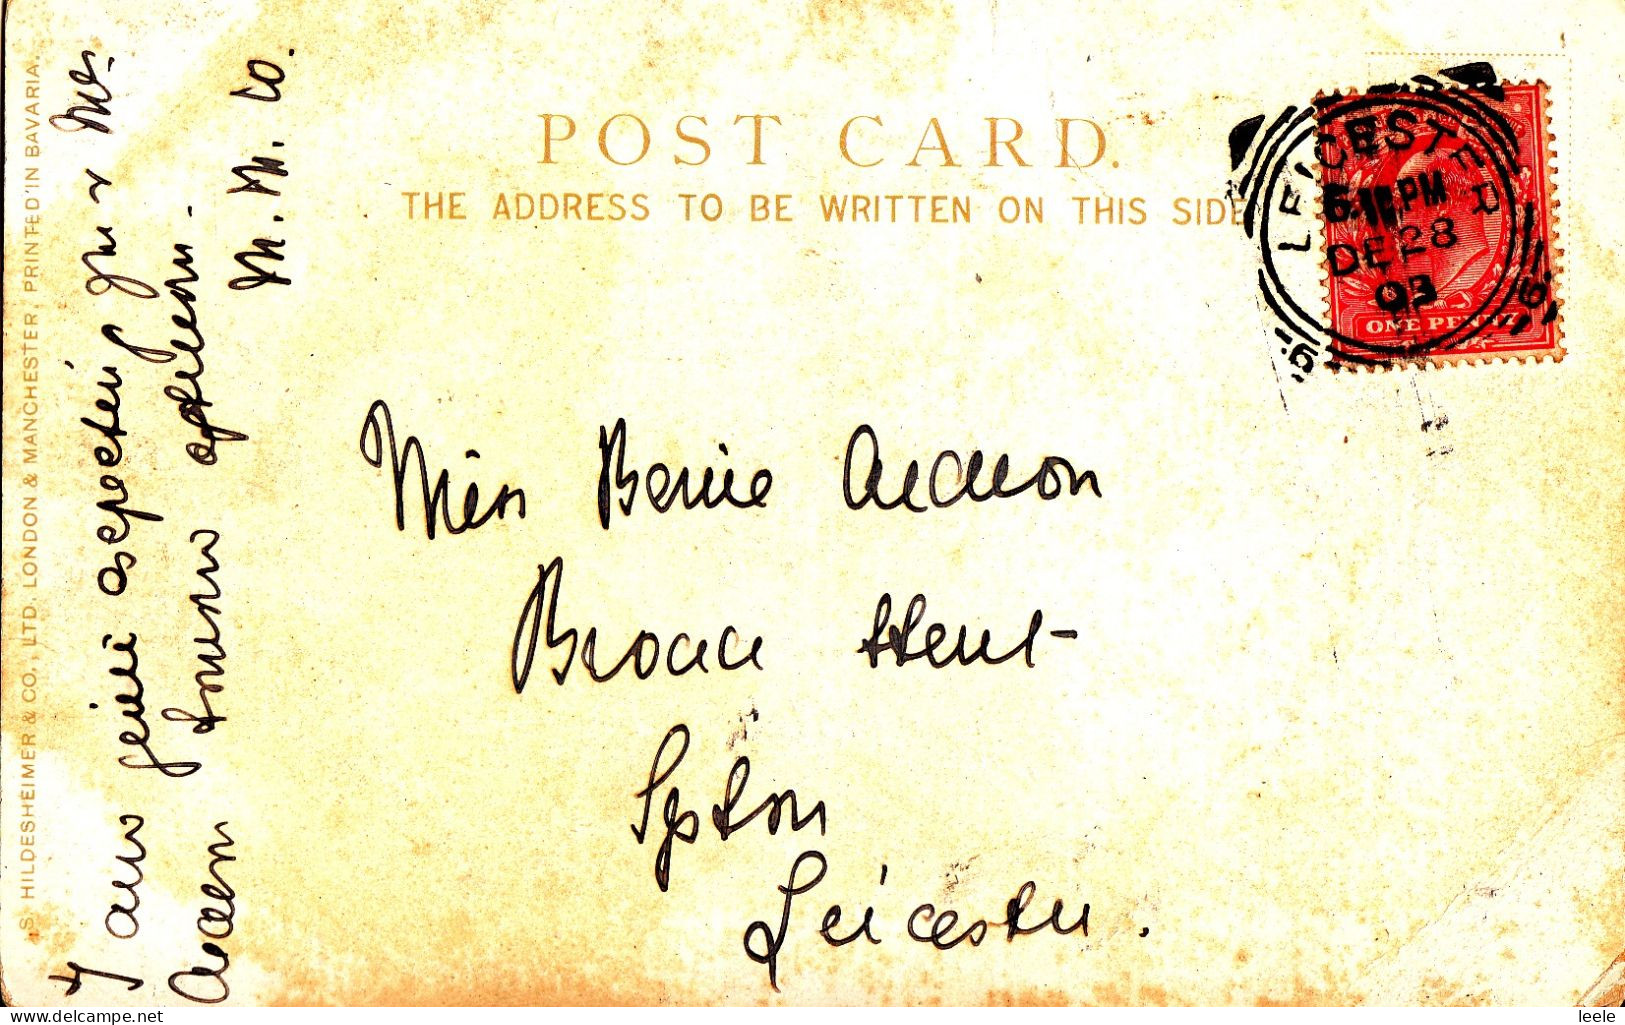 POST CARD.
THE ADDRESS TO BE WRITTEN ON THIS SIDE
LEICESTER
6.15 PM
DE 28
03
ONE PENNY
Miss
Broad Street
Syston
Leicester.
I am
Mr & Mrs
tomorrow afternoon.
M. M. Co.
S. HILDESHEIMER & CO., LTD. LONDON & MANCHESTER, PRINTED IN BAVARIA.
www.delcampe.net
leele